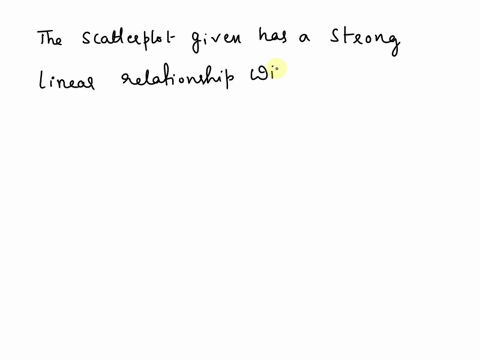 The scatterplot given has a strong
linear relationship wi